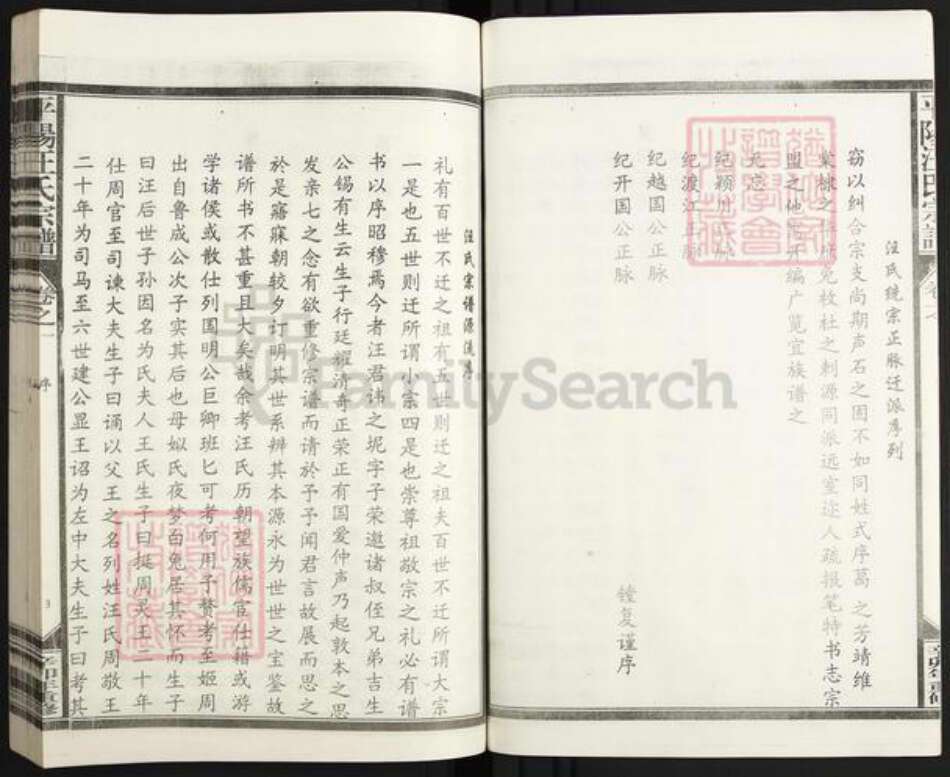 汪氏统宗正脉迁派序列
窃以纠合宗支尚期声石之固不如同姓式序葛之芳靖维
棠棣之 免杕杜之刺源同派远室迩人疏报笔特书志宗
盟之 开编广览宜族谱之
纪颖川 脉
纪渡江正脉
纪越国公正脉
纪开国公正脉
镗复谨序
汪氏宗谱源流序
礼有百世不迁之祖有五世则迁之祖夫百世不迁所谓大宗
一是也五世则迁所谓小宗四是也崇尊祖敬宗之礼必有谱
书以序昭穆焉今者汪君讳之坭字子荣邀诸叔侄兄弟吉生
公锡有生云生子行廷耀清奇正荣正有国爱仲声乃起敦本之思
发亲七之念有欲重修宗谱而请於予予闻君言故展而思之
於是寤寐朝较夕订明其世系辨其本源永为世世之宝鉴故
谱所书不甚重且大矣哉余考汪氏历朝望族儒官仕籍或游
学诸侯或散仕列国明公巨卿班匕可考何用予赘考至姬周
出自鲁成公次子实其后也母姒氏夜梦白兔居其怀而生子
曰汪后世子孙因名为氏夫人王氏生子曰挺周灵王二十年
仕周官至司谏大夫生子曰诵以父王之名列姓汪氏周敬王
二十年为司马至六世建公显王诏为左中大夫生子曰考其
平阳汪氏宗谱
卷之一
序
3
辛卯年重修
FamilySearch